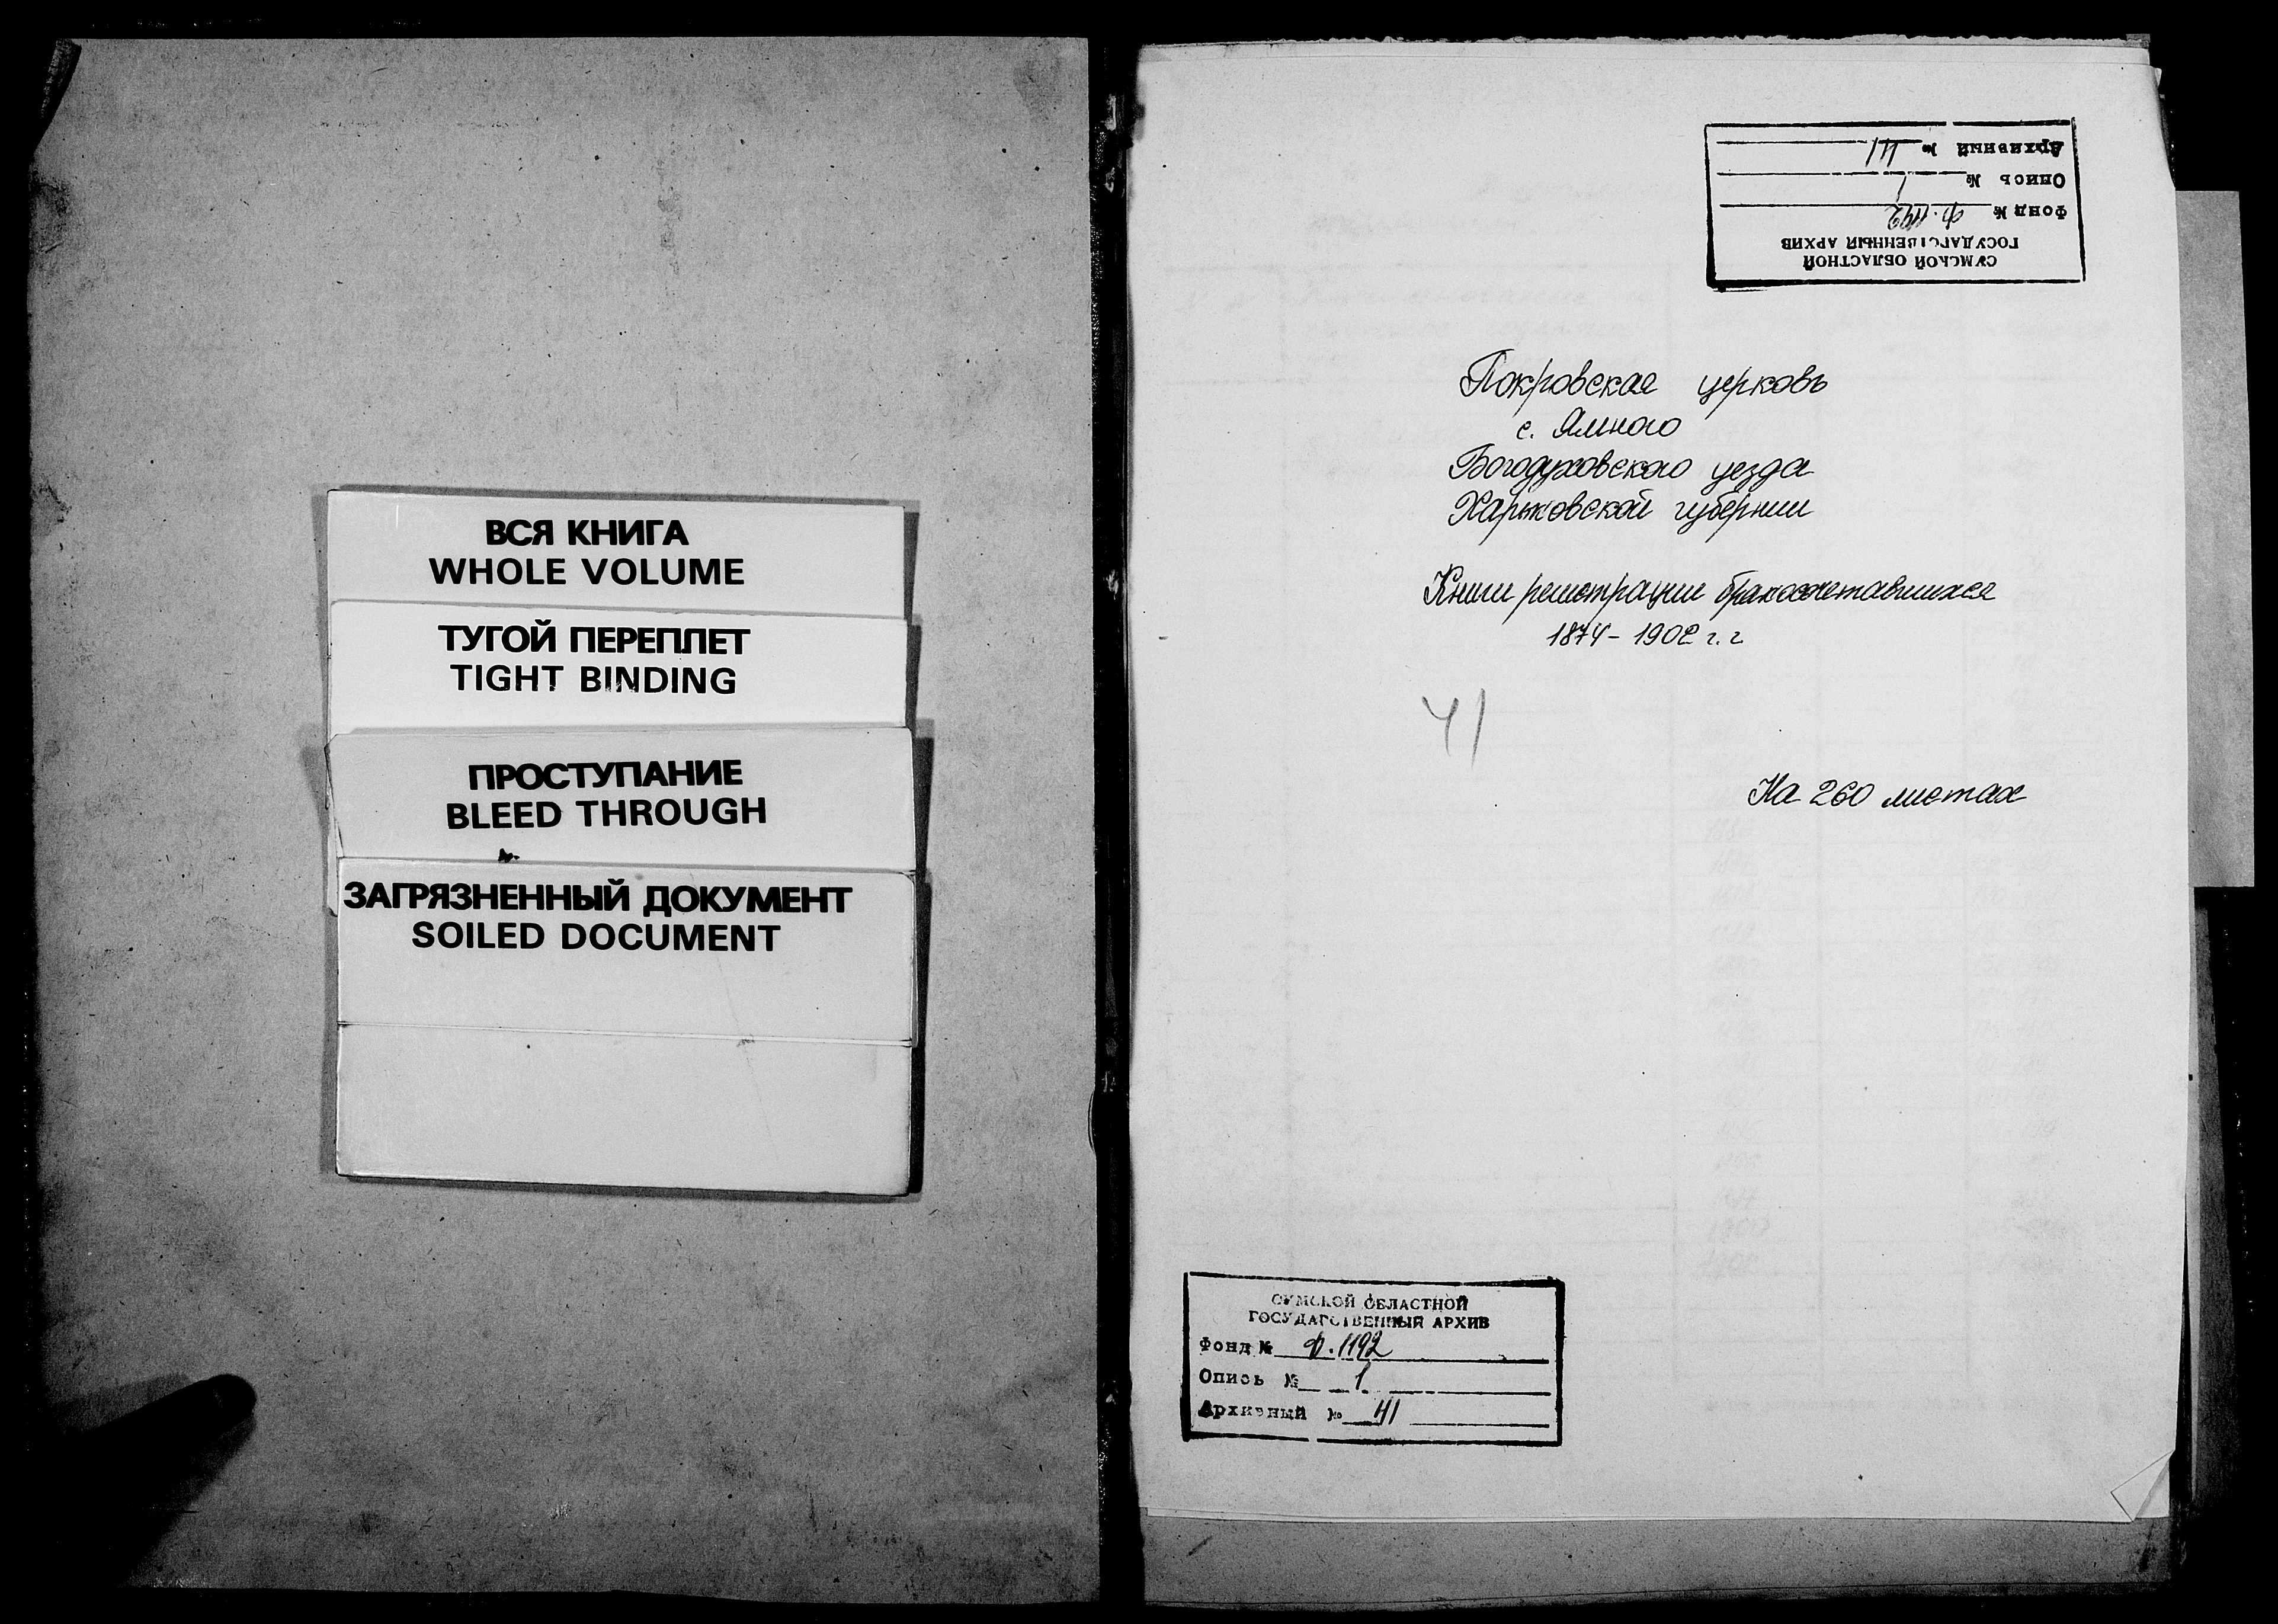 ВСЯ КНИГА
WHOLE VOLUME
ТУГОЙ ПЕРЕПЛЕТ
TIGHT BINDING
ПРОСТУПАНИЕ
BLEED THROUGH
ЗАГРЯЗНЕННЫЙ ДОКУМЕНТ
SOILED DOCUMENT
СУМСКОЙ ОБЛАСТНОЙ
ГОСУДАРСТВЕННЫЙ АРХИВ
Фонд № Ф.1192
Опись № 1
Архивный № 41
Покровская церковь
с. Ямного
Богодуховского уезда
Харьковской губернии
Книги регистрации бракосочетавшихся
1874-1902 г.г.
41
На 260 листах
СУМСКОЙ ОБЛАСТНОЙ
ГОСУДАРСТВЕННЫЙ АРХИВ
Фонд № Ф.1192
Опись № 1
Архивный № 41